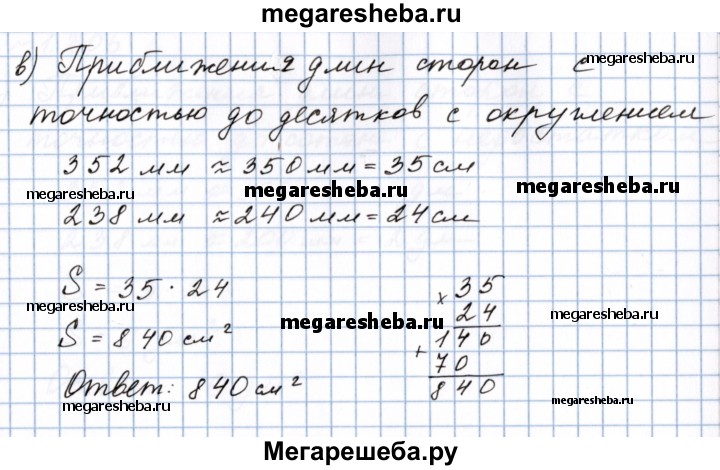 megaresheba.ru
в) Приближения длин сторон с
megaresheba.ru
точностью до десятков с округлением
352 мм ≈ 350 мм = 35 см
megaresheba.ru megaresheba.ru megaresheba.ru
238 мм ≈ 240 мм = 24 см
S = 35 · 24
megaresheba.ru megaresheba.ru megaresheba.ru
S = 840 см²
Ответ: 840 см²
megaresheba.ru megaresheba.ru
× 35
24
140
+ 70
840
Мегарешеба.ру